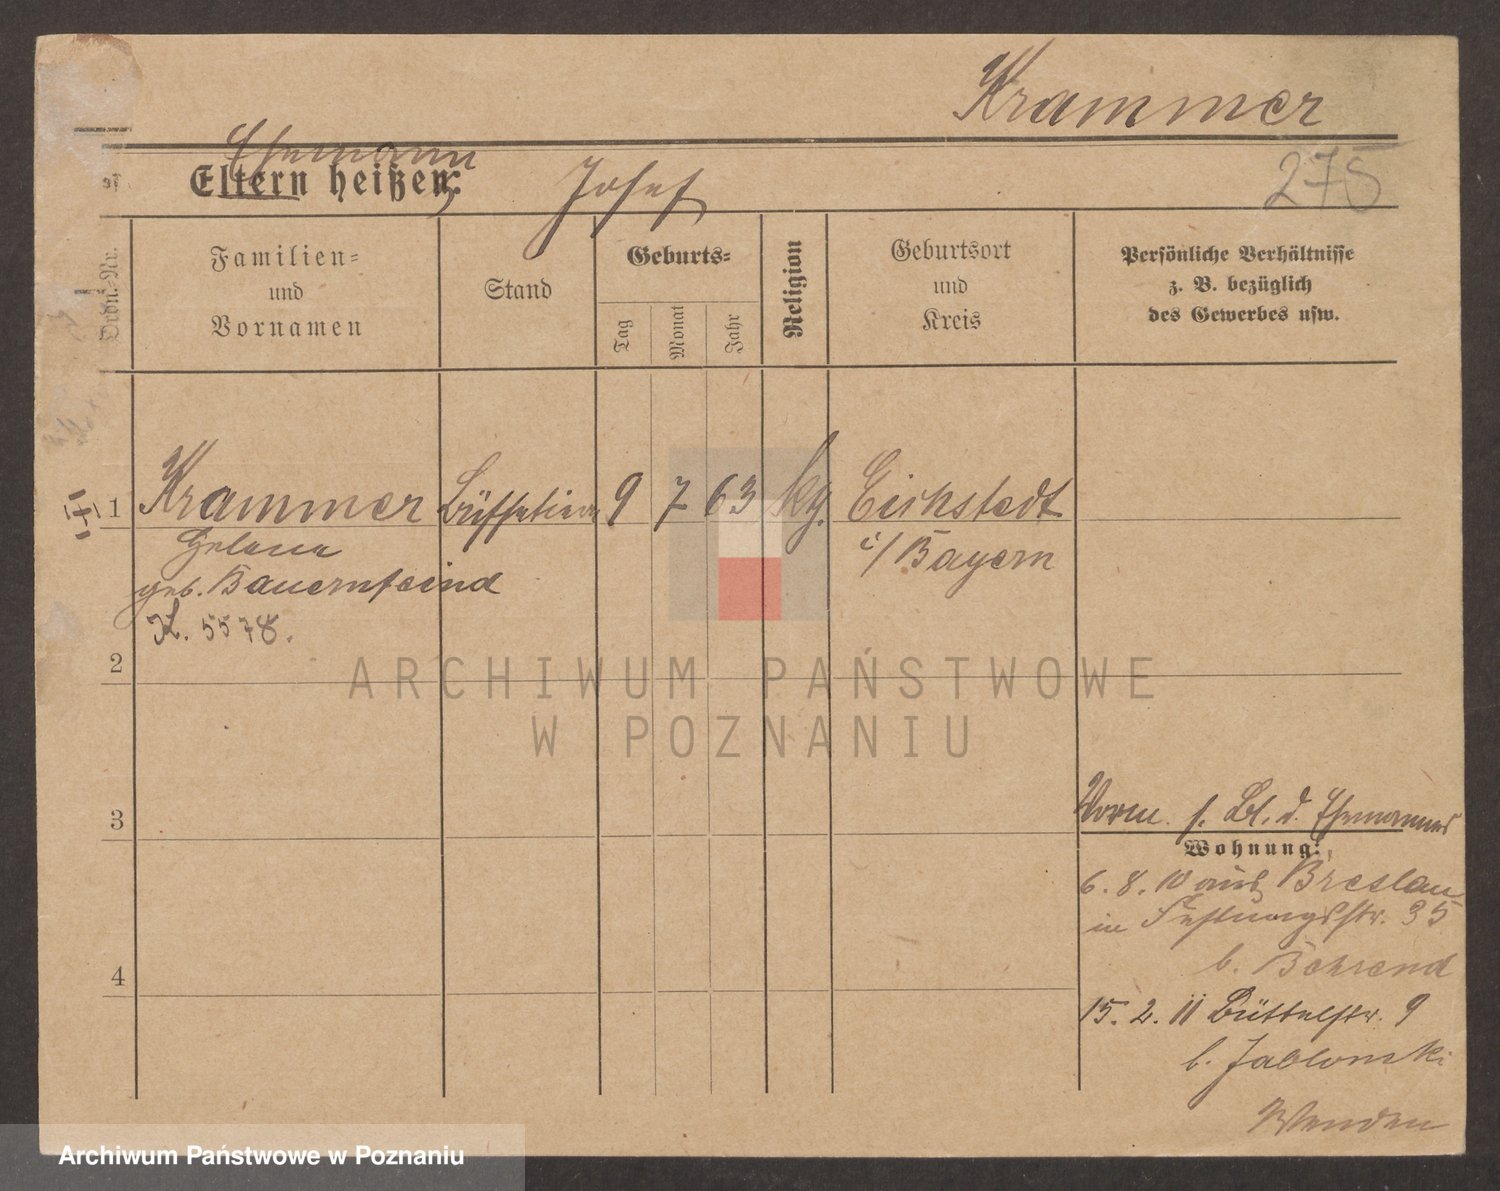 Krammer
275
Ehemann
Eltern heißen:
Josef
Ordn.-Nr.
Familien=
und
Vornamen
Stand
Geburts=
Tag
Monat
Jahr
Religion
Geburtsort
und
Kreis
Persönliche Verhältnisse
z. B. bezüglich
des Gewerbes usw.
1 Krammer Büffetiere 9 7 63 kg. Eichstedt
Helene i/Bayern
geb. Bauernfeind
K. 5578.
2
3
4
Vorm. s. Bl. d. Ehemannes
Wohnung:
6. 8. 10 aus Breslau
in Festungsstr. 35
b. Behrend
15. 2. 11 Büttelstr. 9
b. Jablonski
Wenden
ARCHIWUM PAŃSTWOWE
W POZNANIU
Archiwum Państwowe w Poznaniu